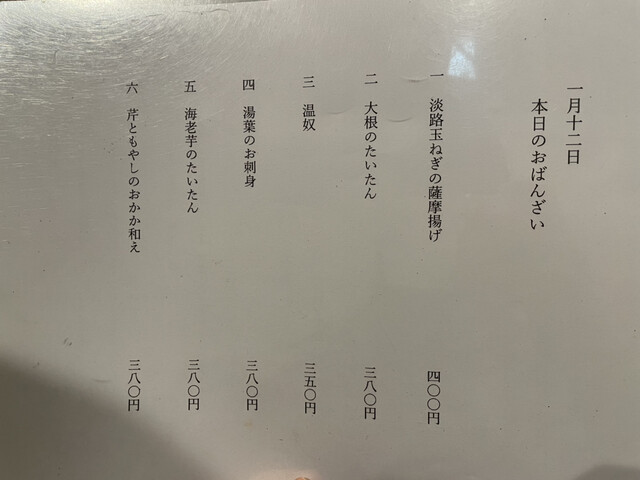 一月十二日
本日のおばんざい
一 淡路玉ねぎの薩摩揚げ 四〇〇円
二 大根のたいたん 三八〇円
三 温奴 三五〇円
四 湯葉のお刺身 三八〇円
五 海老芋のたいたん 三八〇円
六 芹ともやしのおかか和え 三八〇円